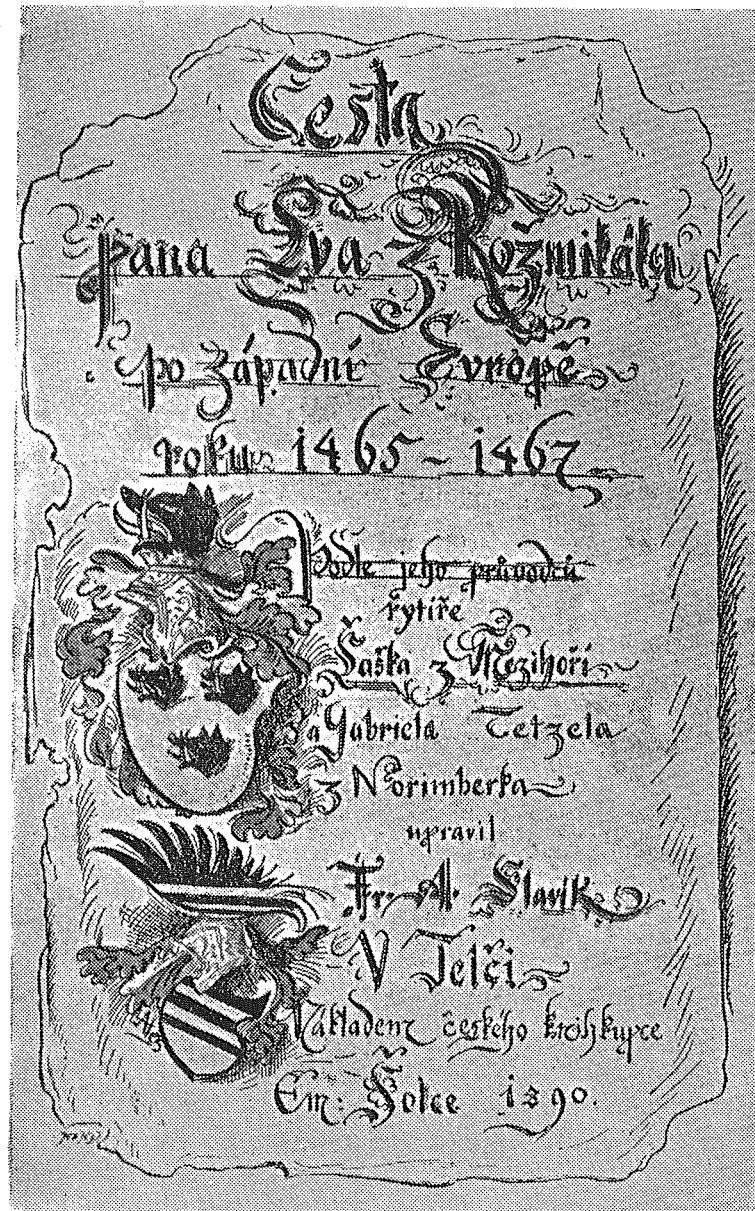 Cesta
pana Lva z Rožmitála
po západní Evropě
roku 1465-1467
Podle jeho průvodců
rytíře
Šaška z Mezihoří
a Gabriela Tetzela
z Norimberka
upravil
Fr. A. Slavík
V Telči
Nákladem českého knihkupce
Em. Šolce 1890.